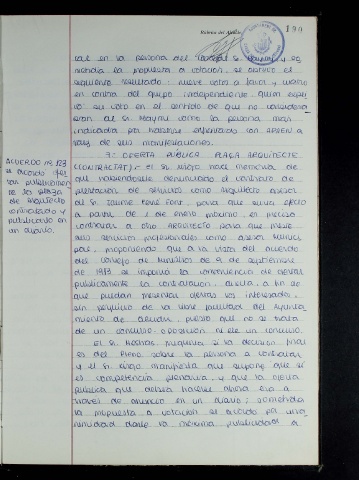 190
cae en la persona del
metida la propuesta a votación, se obtuvo el
siguiente resultado: nueve votos a favor y cuatro
en contra del grupo independiente quien expli
có su voto en el sentido de que no considera
ban al Sr. como la persona más
indicada por haberse enfrentado con APREN a
raíz de sus manifestaciones.
7: OFERTA PÚBLICA PLAZA ARQUITECTE
(CONTRACTAT).- El Sr. hace memoria de
que habiéndose denunciado el contrato de
prestación de servicios como Arquitecto asesor
al Sr. Jaime Bené Font, para que surta efecto
a partir de 1 de enero próximo, es preciso
contratar a otro Arquitecto para que preste
sus servicios profesionales como asesor munici
pal, proponiendo que a la vista del acuerdo
del Consejo de Ministros de 9 de septiembre
de 1983 se imponía la conveniencia de ofertar
públicamente la contratación, a fin de
que puedan presentar ofertas los interesados,
sin perjuicio de la libre facultad del Ayunta
miento de decidir, puesto que no se trata
de un concurso-oposición ni de un concurso.
El Sr. pregunta si la decisión final
es del Pleno sobre la persona a contratar
y el Sr. manifiesta que supone que sí
es competencia plenaria, y que la oferta
pública que debía hacerse ahora era a
través de anuncio en un diario; sometida
la propuesta a votación se acordó por una
nimidad darle la máxima publicidad a
ACUERDO nº 123
se acordó ofer
tar públicamen
te la plaza
de Arquitecto
contratado y
publicarlo en
un diario.